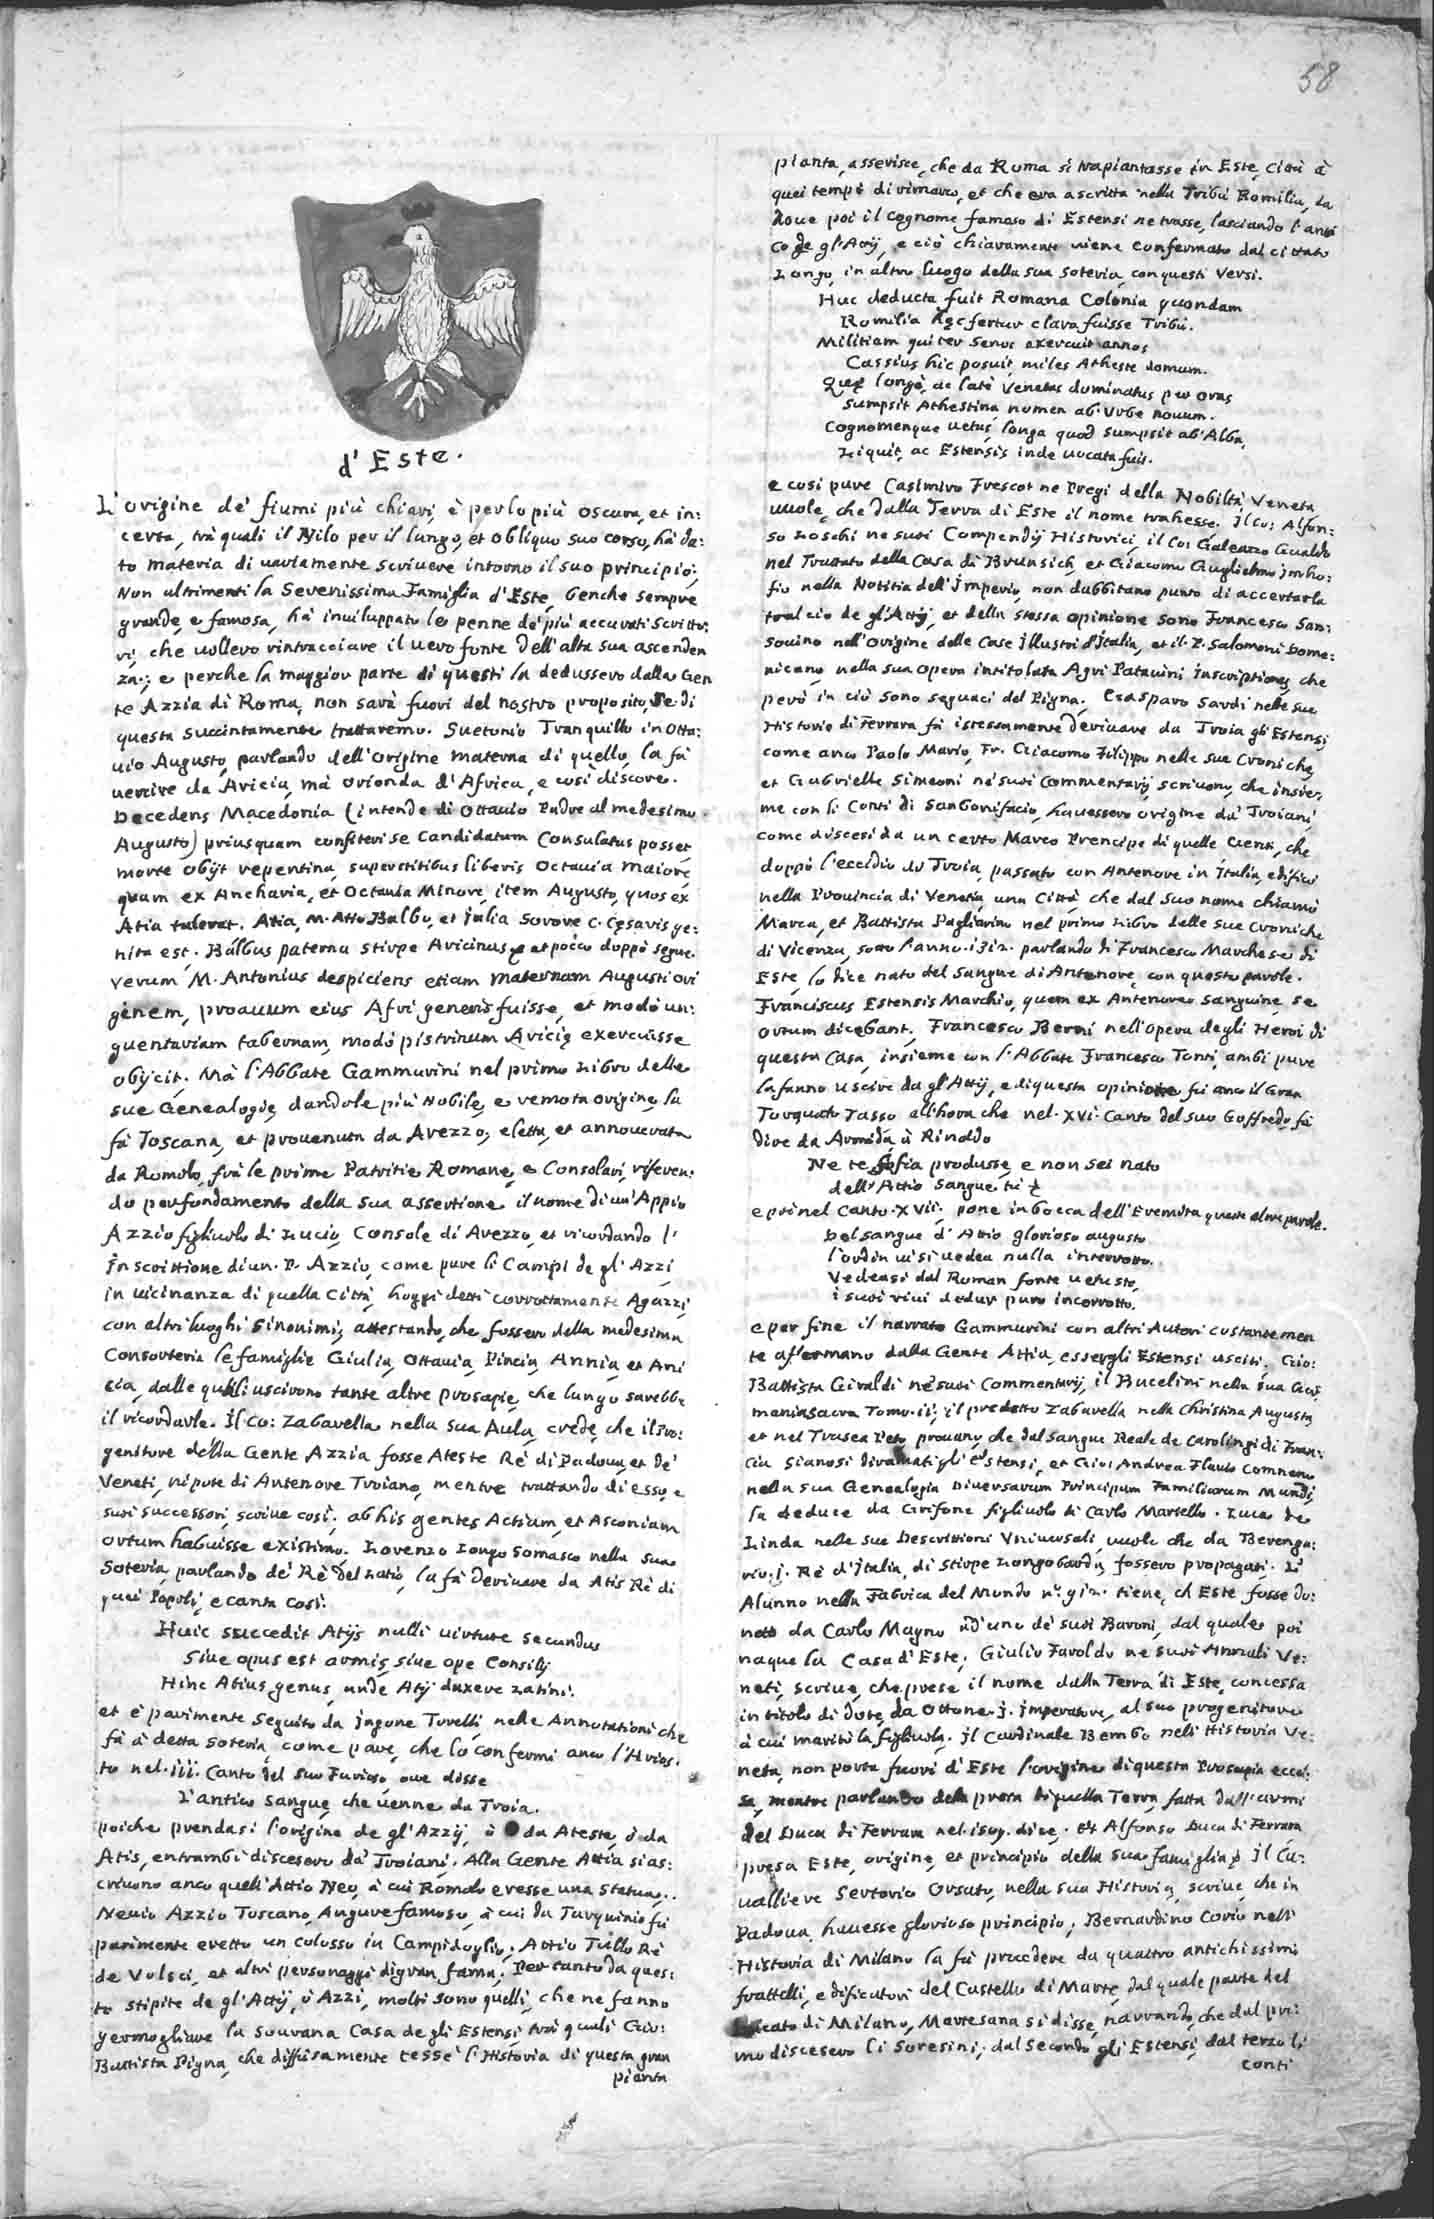 58
d' Este.
L'origine de' fiumi più chiari, è per lo più oscura, et in:
certa, trà quali il Nilo per il lungo, et obliquo suo corso, hà da:
to materia di variamente scrivere intorno il suo principio;
Non altrimenti la Serenissima Famiglia d'Este, benche sempre
grande, e famosa, hà inviluppato le penne de' più accurati Scritto:
ri, che vollero rintracciare il vero fonte dell'alta sua ascenden
za; e perche la maggior parte di questi la dedussero dalla Gen
te Azzia di Roma, non sarà fuori del nostro proposito, se di
questa succintamente trattaremo. Suetonio Tranquillo in Otta:
vio Augusto, parlando dell'origine materna di quello, la fà
vercire da Aricia, mà orionda d'Africa, e così discore.
Decedens Macedonia (intende di Ottavio Padre al medesimo
Augusto) priusquam profiteri se Candidatum Consulatus posset
morte obijt repentina, superstitibus liberis Octavia Maiore
quam ex Ancharia, et Octavia Minore, item Augusto, quos ex
Atia tulerat. Atia, M. Atto Balbo, et Julia Sorore C. Cęsaris ge:
nita est. Balbus paterna stirpe Aricinus, et poco doppò segue.
Verum M. Antonius despiciens etiam maternam Augusti ori
ginem, proavum eius Afri generis fuisse, et modò un:
guentariam tabernam, modò pistrinum Aricię exercuisse
obijcit. Mà l'Abbate Gammurini nel primo Libro delle
sue Genealogie, dandole più Nobile, e remota origine, la
fà Toscana, et provenuta da Arezzo; eletta, et annoverata
da Romolo, frà le prime Patritie Romane, e Consolari, riferen:
do per fondamento della sua assertione, il nome di un'Appio
Azzio figliuolo di Lucio, Console di Arezzo, et ricordando l'
Inscrittione di un. P. Azzio, come pure li Campi de gl'Azzi
in vicinanza di quella Città, hoggi detti corrottamente Agazzi
con altri luoghi sinonimi; attestando, che fossero della medesima
Consorteria le famiglie Giulia, Ottavia, Pincia, Annia, et Ani
cia, dalle quali uscirono tante altre prosapie, che lungo sarebbe
il ricordarle. Il Co: Zabarella nella sua Aula, crede, che il Pro:
genitore della Gente Azzia fosse Ateste Rè di Padova, et de'
Veneti, nipote di Antenore Troiano, mentre trattando di esso, e
suoi successori, scrive così; ab his gentes Actiam, et Asconiam
ortum habuisse existimo. Lorenzo Longo Somasco nella sua
Soteria, parlando de' Rè del Latio, la fà derivare da Atis Rè di
quei Popoli, e canta così.
Huic succedit Atijs nulli virtute secundus
Sive opus est armis, sive ope Consilij
Hinc Atius genus, unde Atij duxere Latini.
et è parimente seguito da Ingone Torelli, nelle Annotationi che
fà à detta Soteria, come pare, che lo confermi anco l'Arios:
to nel. iii. Canto del suo Furioso, ove disse
L'antico sangue, che venne da Troia.
poiche prendasi l'origine de gl'Azzij, ò da Ateste, ò da
Atis, entrambi discesero da' Troiani. Alla Gente Attia si as:
crivono anco quell'Attio Neo, à cui Romolo eresse una statua;
Nevio Azzio Toscano, Augure famoso, à cui da Tarquinio fù
parimente eretto un colosso in Campidoglio; Attio Tullo Rè
de Volsci, et altri personaggi di gran fama. Per tanto da ques:
to stipite de gl'Attij, ò Azzi, molti sono quelli, che ne fanno
germogliare la sovrana Casa de gli Estensi, trà quali Gio:
Battista Pigna, che diffusamente tesse l'Historia di questa gran
pianta
pianta, asserisce, che da Roma si trapiantasse in Este, Città à
quei tempi di rimarco, et che era ascritta nella Tribù Romilia, da
dove poi il cognome famoso di Estensi ne trasse, lasciando l'anti
co de gl'Attij, e ciò chiaramente viene confermato dal cittato
Longo, in altro luogo della sua Soteria, con questi versi.
Huc deducta fuit Romana Colonia quondam
Romilia hęc fertur clara fuisse Tribù.
Militiam qui ter senos exercuit annos
Cassius hic posuit, miles Atheste domum.
Quę longè, ac latè Venetas dominatus per oras
Sumpsit Athestina nomen ab Urbe novum.
Cognomenque vetus, longa quod sumpsit ab Alba,
Liquit, ac Estensis inde vocata fuit.
e così pure Casimiro Frescot ne Pregi della Nobiltà Veneta,
vuole, che dalla Terra di Este il nome trahesse. Il Co: Alfon:
so Loschi ne suoi Compendij Historici, il Co: Galeazzo Gualdo
nel Trattato della Casa di Brunsich, et Giacomo Guglielmo Imho:
fio nella Notitia dell'Imperio, non dubbitano punto di accertarla
tralcio de gl'Attij, et della stessa opinione sono Francesco San:
sovino nell'Origine delle Case Illustri d'Italia, et il P. Salomoni Dome:
nicano nella sua opera intitolata Agri Patavini Inscriptiones, che
però in ciò sono seguaci del Pigna. Gasparo Sardi nelle sue
Historie di Ferrara fà istessamente derivare da Troia gl'Estensi,
come anco Paolo Mario, Fr. Giacomo Filippo nelle sue Croniche,
et Gabrielle Simeoni ne' suoi Commentarij scrivono, che insie:
me con li Conti di San Bonifacio, havessero origine da' Troiani,
come discesi da un certo Marco Prencipe di quelle Genti, che
doppò l'eccidio di Troia, passato con Antenore in Italia, edificò
nella Provincia di Venetia una Città che dal suo nome chiamò
Marca, et Battista Pagliarino nel primo Libro delle sue Croniche
di Vicenza, sotto l'anno. 1312. parlando di Francesco Marchese di
Este, lo dice nato del sangue di Antenore, con queste parole.
Franciscus Estensis Marchio, quem ex Antenoreo sanguine, se
ortum dicebant. Francesco Berni nell'opera degli Heroi di
questa Casa, insieme con l'Abbate Francesco Tonti, ambi pure
la fanno uscire da gl'Attij, e di questa opinione fù anco il Gran
Torquato Tasso all'hora che nel. XVI. Canto del suo Goffredo, fà
dire da Armida à Rinaldo
Ne te Sofia produsse, e non sei nato
dell'Attio sangue tù
e poi nel Canto. XVII. pone in bocca dell'Eremita queste altre parole.
Del sangue d'Attio glorioso augusto
l'ordin vi si vedea nulla interrotto.
Vedeasi dal Roman fonte vetusto,
i suoi rivi dedur puro incorrotto.
e per fine il narrato Gammurini con altri Autori costantemen
te affermano dalla Gente Attia, esser gli Estensi usciti. Gio:
Battista Giraldi ne' suoi Commentarij, il Bucelini nella sua Ger
mania sacra Tomo. ii; il predetto Zabarella nella Christina Augusta,
et nel Trasea Peto provano, che dal sangue Reale de Carolingi di Fran:
cia sianosi diramati gli Estensi, et Gio: Andrea Flavio Comneno
nella sua Genealogia Diversarum Principum Familiarum Mundi,
la deduce da Grifone figliuolo di Carlo Martello. Luca de
Linda nelle sue Descrittioni Universali, vuole che da Berenga:
rio. j. Rè d'Italia, di stirpe Longobarda, fossero propagati. L'
Alunno nella Fabrica del Mondo nº. 912. tiene, ch Este fosse do:
nato da Carlo Magno ad uno de' suoi Baroni, dal quale poi
naque la Casa d'Este; Giulio Faroldo ne suoi Annali Ve:
neti, scrive, che prese il nome dalla Terra di Este, concessa
in titolo di dote, da Ottone. j. Imperatore, al suo progenitore
à cui maritò la figliuola. Il Cardinale Bembo nell'Historia Ve:
neta, non porta fuori d'Este l'origine di questa Prosapia eccel:
sa, mentre parlando della presa di quella Terra, fatta dall'armi
del Duca di Ferrara nel. 1509. dice. Et Alfonso Duca di Ferrara
presa Este, origine, et principio della sua famiglia; Il Ca:
valliere Sertorio Orsato, nella sua Historia, scrive, che in
Padova, havesse glorioso principio; Bernardino Corio nell'
Historia di Milano la fà procedere da quattro antichissimi
frattelli, edificatori del Castello di Marte, dal quale parte del
Ducato di Milano, Martesana si disse, narrando, che dal pri:
mo discesero li Soresini; dal secondo gli Estensi, dal terzo li
conti